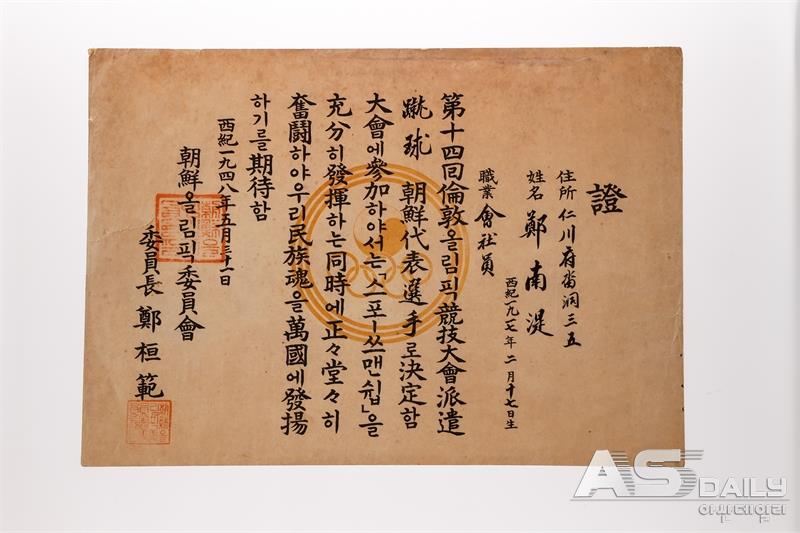 證
住所 仁川府畓洞三五
姓名 鄭南湜
西紀一九一七年二月十七日生
職業 會社員
第十四回倫敦올림픽競技大會派遣
蹴球 朝鮮代表選手로決定함
大會에參加하야서는「스포-쓰맨쉽」을
充分히發揮하는同時에正々堂々히
奮鬪하야우리民族魂을萬國에發揚
하기를期待함
西紀一九四八年五月三十一日
朝鮮올림픽委員會
委員長 鄭桓範
AS DAILY
아산데일리